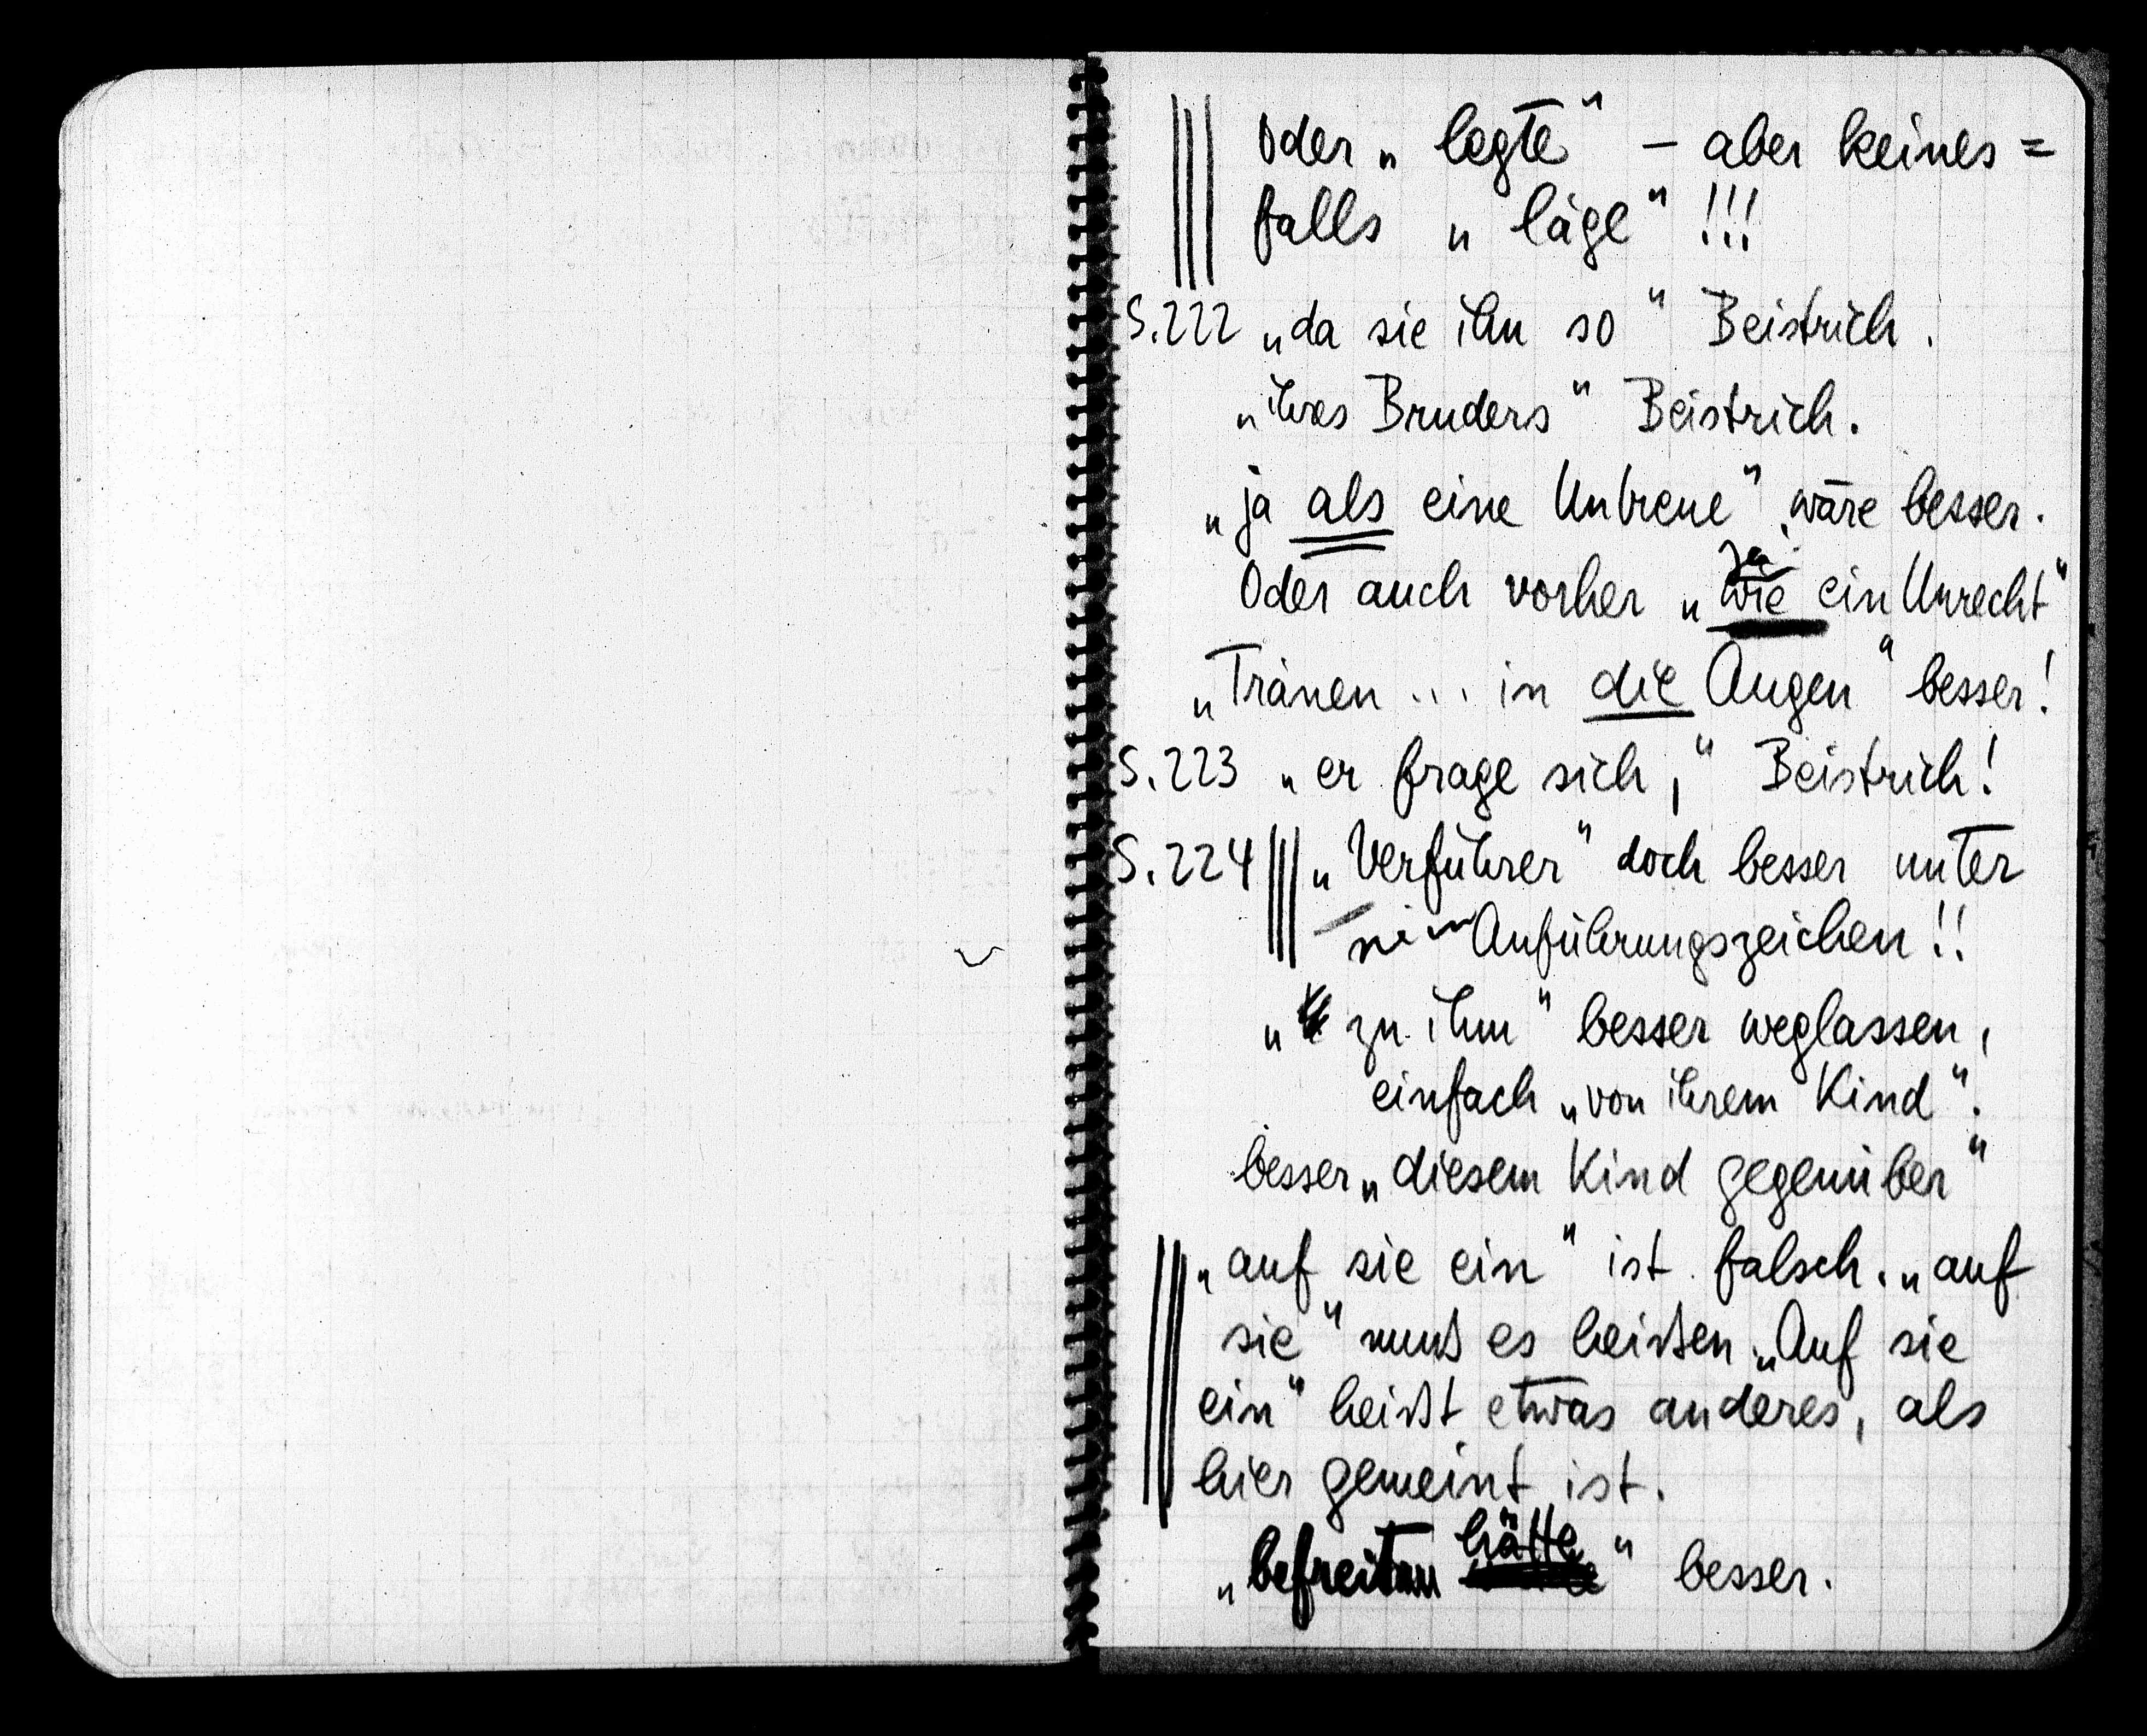 oder „legte“ – aber keines=
falls „läge“ !!!
S.222 „da sie ihn so“ Beistrich.
„ihres Bruders“ Beistrich.
„ja als eine Untreue“ wäre besser.
Oder auch vorher „wie ein Unrecht“
„Tränen ... in die Augen“ besser!
S.223 „er frage sich,“ Beistrich!
S.224 „Verführer“ doch besser unter
Anführungszeichen!!
„zu ihm“ besser weglassen,
einfach „von ihrem Kind“.
besser „diesem Kind gegenüber“
„auf sie ein“ ist falsch. „auf
sie“ muß es heißen. „Auf sie
ein“ heißt etwas anderes, als
hier gemeint ist.
hätte
„ “ besser.